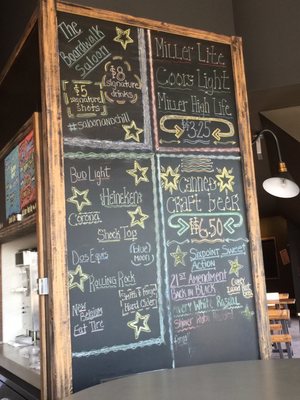 The
Boardwalk
Saloon
$8
signature
drinks
$5
signature
shots
Miller Lite
Coors Light
Miller High Life
$3.25
Bud Light
Heineken
Corona
Shock Top
Dos Equis
(blue)
moon
Rolling Rock
New
Belgium
Fat Tire
Angry Orchard
Hard Cider
Canned
Craft Beer
$6.50
Sixpoint Sweet
Action
21st Amendment
Back in Black
Avery White Rascal